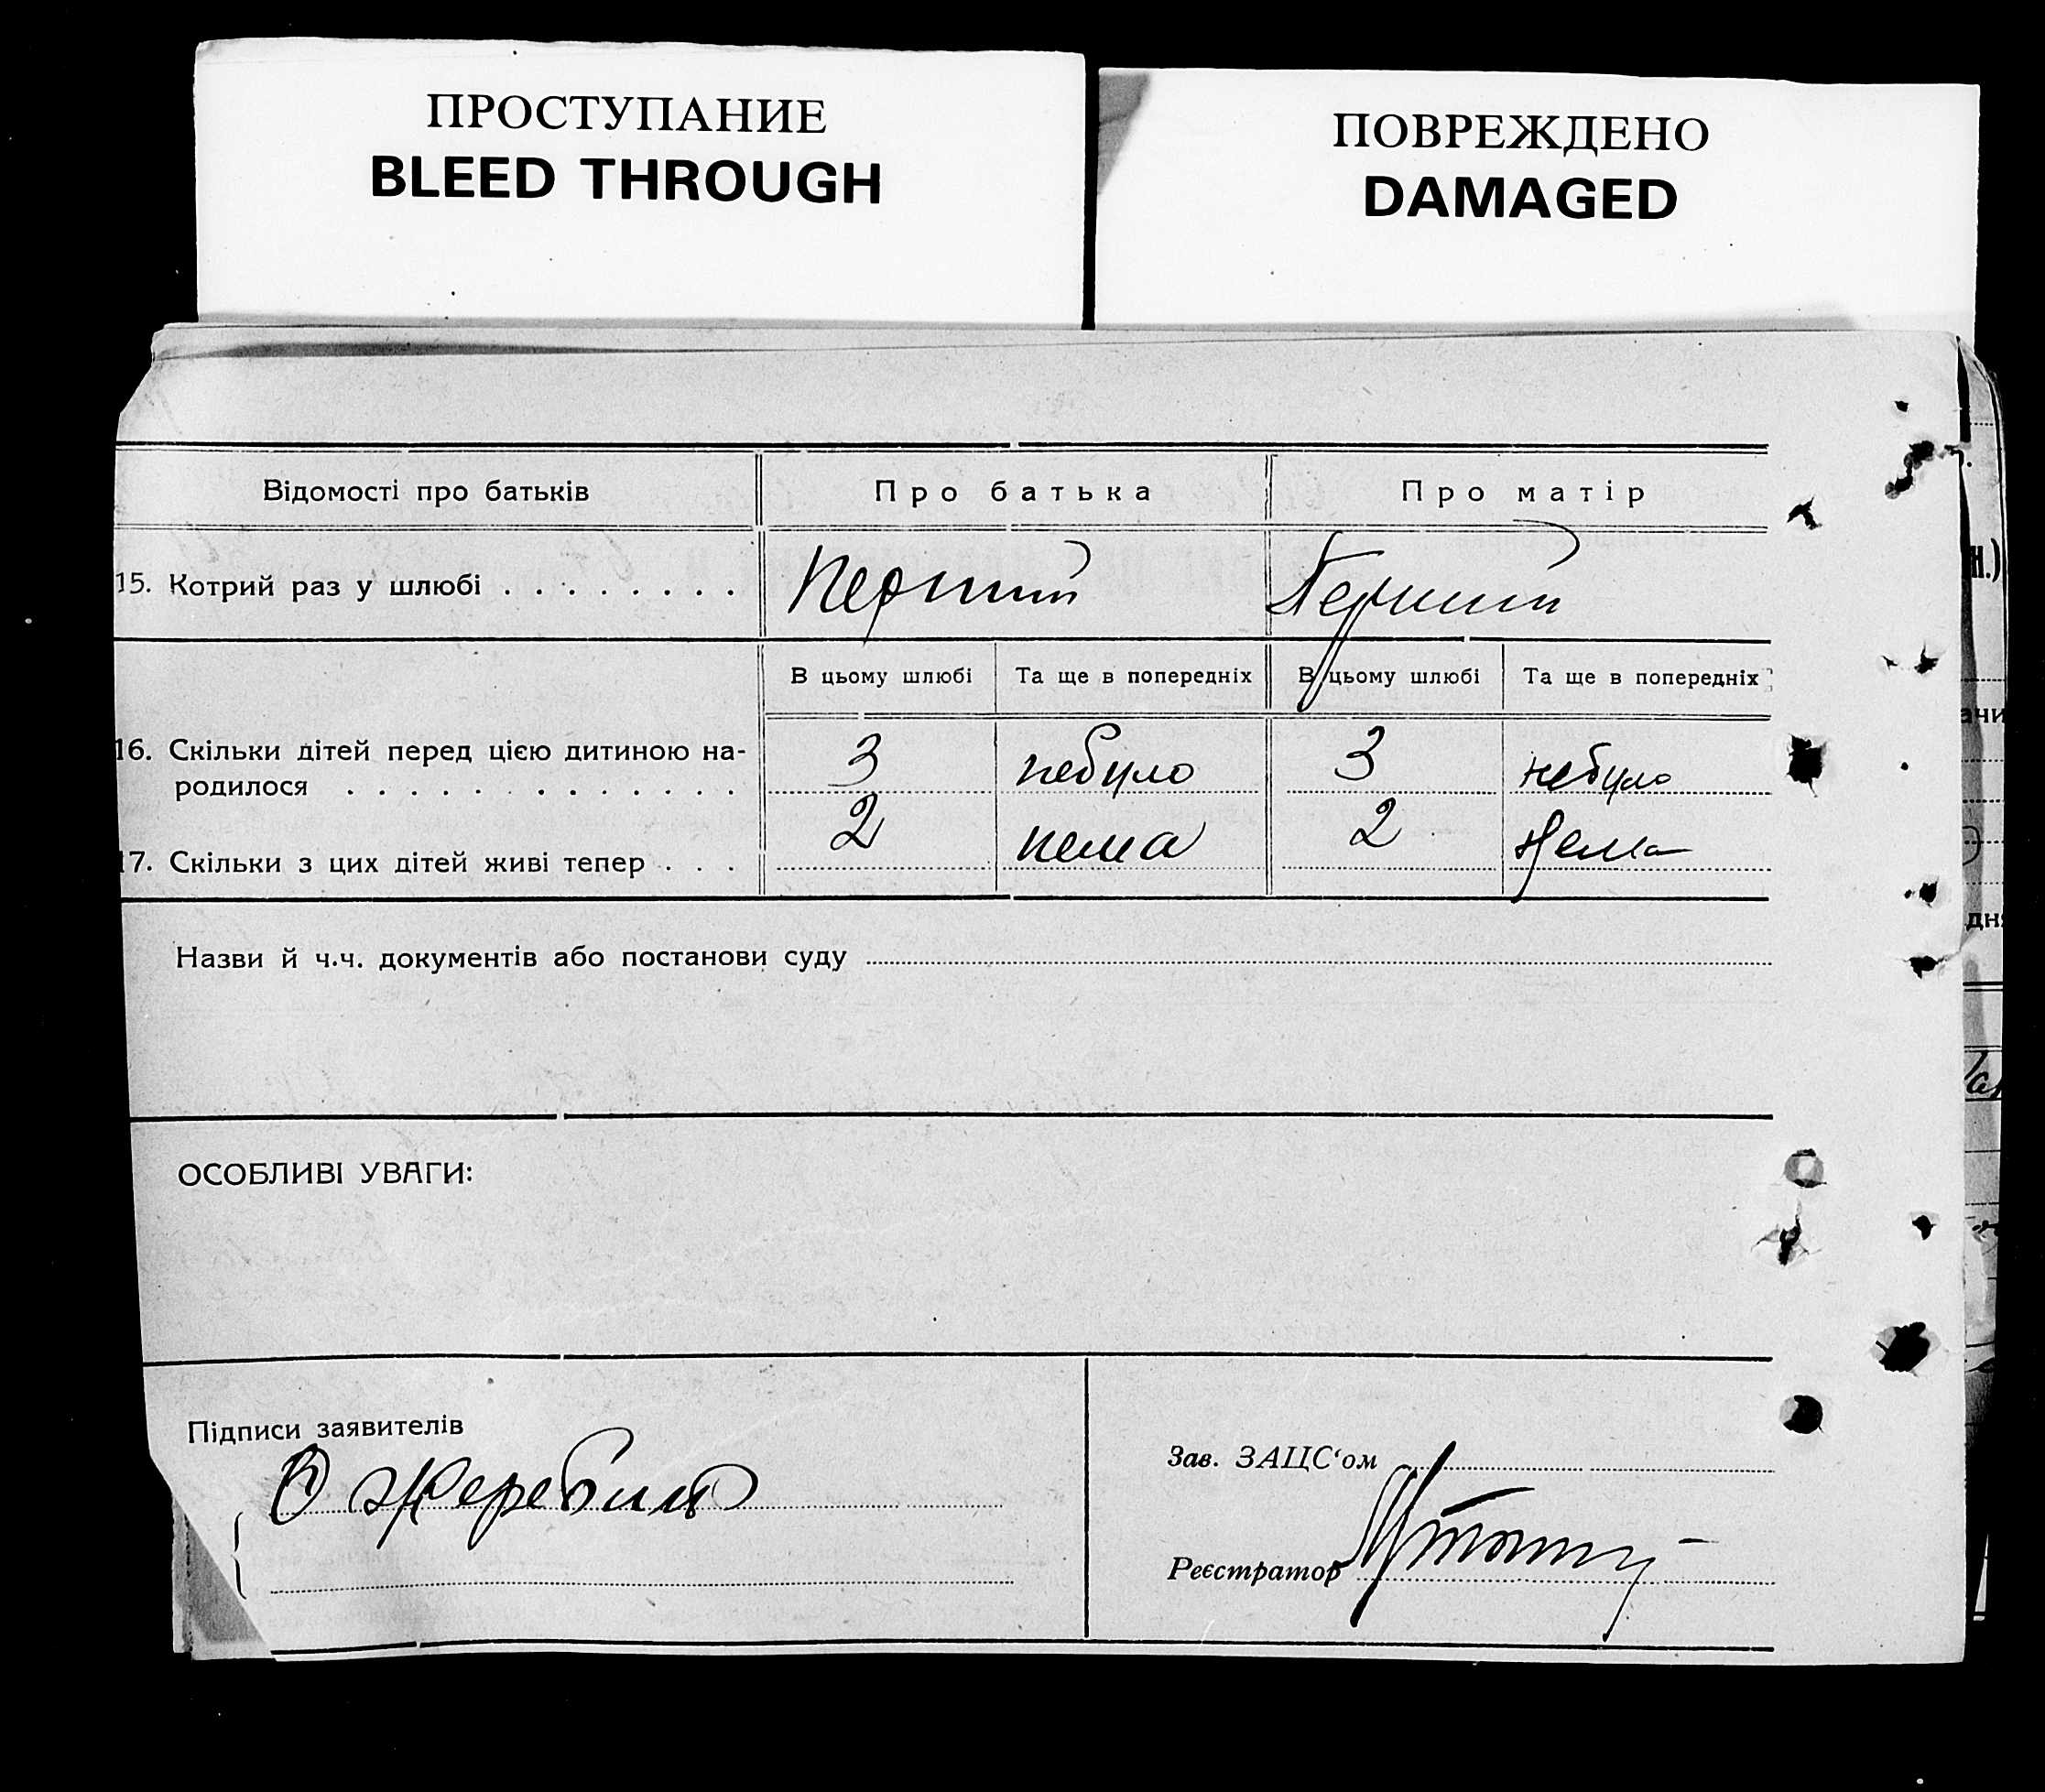 ПРОСТУПАНИЕ
BLEED THROUGH
ПОВРЕЖДЕНО
DAMAGED
Відомості про батьків Про батька Про матір
15. Котрий раз у шлюбі . . . . . . . . Перший Перший
В цьому шлюбі Та ще в попередніх В цьому шлюбі Та ще в попередніх
16. Скільки дітей перед цією дитиною на-
родилося . . . . . . . . . . . . . 3 небуло 3 небуло
17. Скільки з цих дітей живі тепер . . . 2 нема 2 Нема
Назви й ч.ч. документів або постанови суду
ОСОБЛИВІ УВАГИ:
Підписи заявителів
Зав. ЗАЦС‘ом
Реєстратор
н.)
ачи
дня